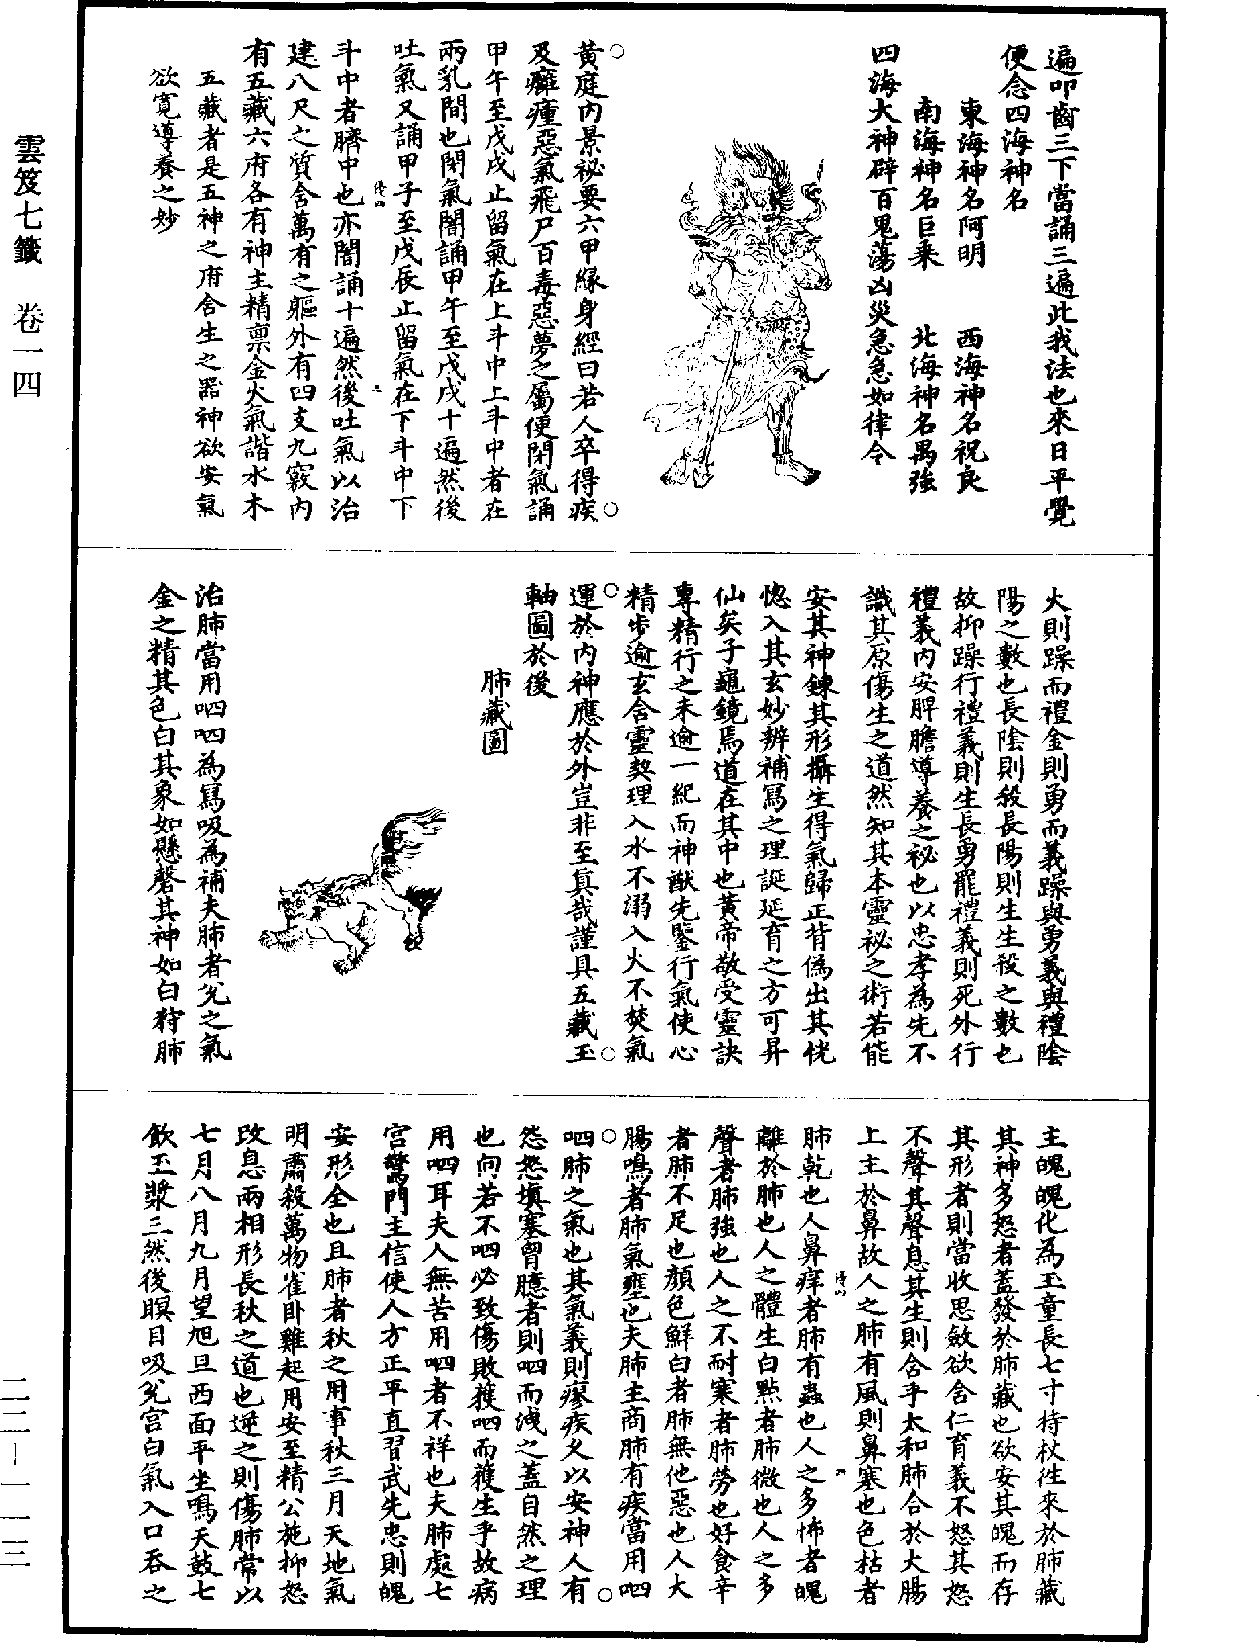 雲笈七籤　卷一四
遍叩齒三下當誦三遍此我法也來日平覺
便念四海神名
東海神名阿明　西海神名祝良
南海神名巨乘　北海神名禺強
四海大神辟百鬼蕩凶災急急如律令
黃庭內景祕要六甲緣身經曰若人卒得疾
及癰瘇惡氣飛尸百毒惡夢之屬便閉氣誦
甲午至戊戌止留氣在上斗中上斗中者在
兩乳間也閉氣闇誦甲午至戊戌十遍然後
吐氣又誦甲子至戊辰止留氣在下斗中下
斗中者臍中也亦闇誦十遍然後吐氣以治
建八尺之質含萬有之軀外有四支九竅內
有五藏六府各有神主精禀金火氣諧水木
五藏者是五神之府舍生之器神欲安氣
欲寛導養之妙
火則躁而禮金則勇而義躁與勇義與禮陰
陽之數也長陰則殺長陽則生生殺之數也
故抑躁行禮義則生長勇罷禮義則死外行
禮義內安脾膽導養之祕也以忠孝為先不
識其原傷生之道然知其本靈祕之術若能
安其神鍊其形攝生得氣歸正背偽出其恍
惚入其玄妙辨補寫之理誕延育之方可昇
仙矣子龜鏡焉道在其中也黃帝敬受靈訣
專精行之未逾一紀而神猷先鑒行氣使心
精步逾玄含靈契理入水不溺入火不焚氣
運於內神應於外豈非至真哉謹具五藏玉
軸圖於後
肺藏圖
治肺當用呬呬為寫吸為補夫肺者兌之氣
金之精其色白其象如懸磬其神如白狩肺
主魄魄化為玉童長七寸持杖往來於肺藏
其神多怒者蓋發於肺藏也欲安其魄而存
其形者則當收思斂欲含仁育義不怒其怒
不聲其聲息其生則合乎太和肺合於大腸
上主於鼻故人之肺有風則鼻塞也色枯者
肺乾也人鼻痒者肺有蟲也人之多怖者魄
離於肺也人之體生白點者肺微也人之多
聲者肺強也人之不耐寒者肺勞也好食辛
者肺不足也顏色鮮白者肺無他惡也人大
腸鳴者肺氣壅也夫肺主商肺有疾當用呬
呬肺之氣也其氣義則瘳疾又以安神人有
怨怒填塞胷臆者則呬而洩之蓋自然之理
也向若不呬必致傷敗獲呬而獲生乎故病
用呬耳夫人無苦用呬者不祥也夫肺處七
宮驚門主信使人方正平直習武先忠則魄
安形全也且肺者秋之用事秋三月天地氣
明肅殺萬物雀卧雞起用安至精公施抑怒
改息兩相形長秋之道也逆之則傷肺常以
七月八月九月望旭旦西面平坐鳴天鼓七
飲玉漿三然後瞑目吸兌宮白氣入口吞之
二二—一一三